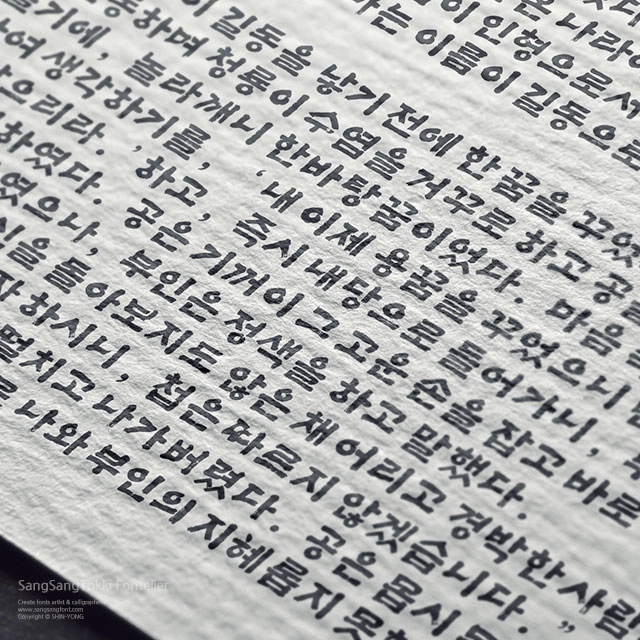 나라에
이 인형으로서
라는 이름이 길동으로
이 길동을 낳기 전에 한 꿈을 꾸었
동하며 청룡이 수염을 거꾸로 하고 공을
기에, 놀라 깨니 한바탕 꿈이었다. 마음
여 생각하기를, ‘내 이제 용꿈을 꾸었으니
으리라.’ 하고, 즉시 내당으로 들어가니,
하였다. 공은 기꺼이 그 고운 손을 잡고 바로
었으나, 부인은 정색을 하고 말했다.
을 돌아보지도 않은 채 어리고 경박한 사람
자 하시니, 첩은 따르지 않겠습니다.”
떨치고 나가버렸다. 공은 몹시
나와 부인의 지혜롭지 못
Create fonts artist & calligraphe
www.sangsangfont.com
Copyright © SHIN-YONG